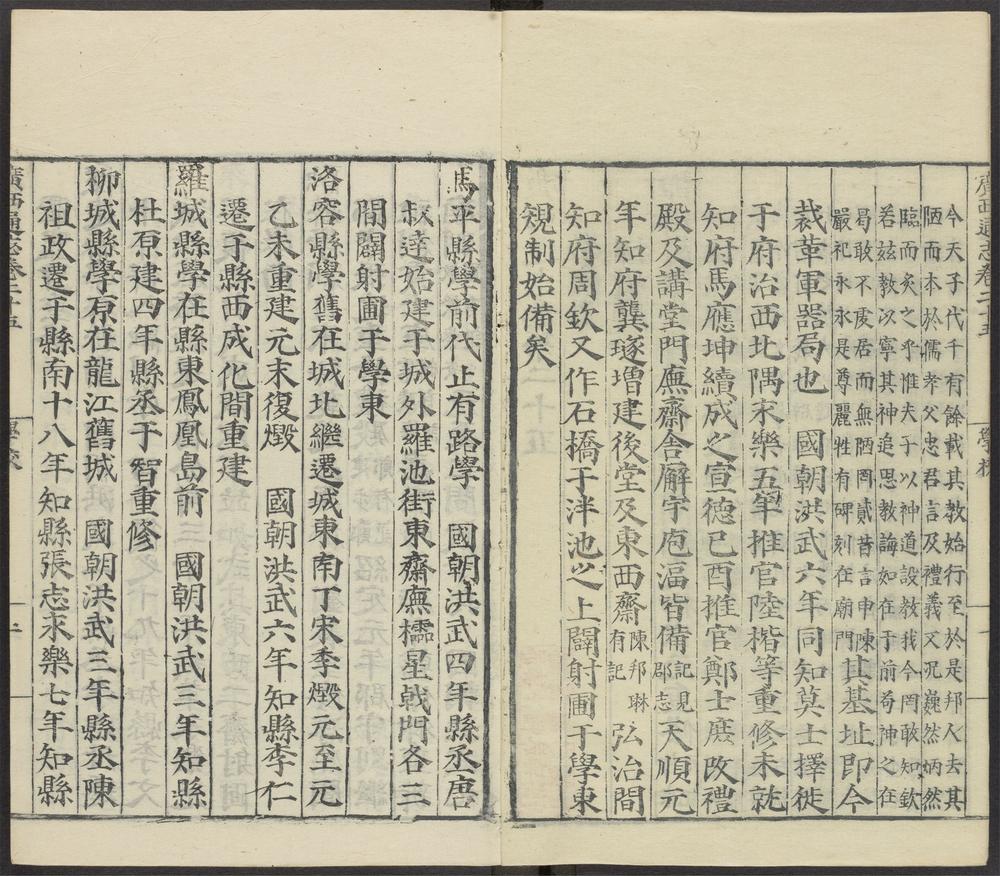 廣西通志卷二十五 學校
今天子代千有餘載其教始行至於是邦人去其
陋而本於儒孝父忠君言及禮義又况巍然炳然
臨而炙之乎惟夫子以神道設教我今罔敢知欽
若兹教以寧其神追思教誨如在于前苟神之在
曷敢不虔居而無陋罔貳昔言申陳
嚴祀永永是尊麗牲有碑刻在廟門其基址即今
裁革軍器局也 國朝洪武六年同知莫士擇徙
于府治西北隅永樂五年推官陸楷等重修未就
知府馬應坤續成之宣德己酉推官鄭士廣改禮
殿及講堂門廡齋舍廨宇庖湢皆備記見郡志天順元
年知府龔璲増建後堂及東西齋陳邦琳有記弘治間
知府周欽又作石橋于泮池之上闢射圃于學東
規制始備矣
馬平縣學前代止有路學 國朝洪武四年縣丞唐
叔達始建于城外羅池街東齋廡櫺星戟門各三
間闢射圃于學東
洛容縣學舊在城北繼遷城東南丁宋季燬元至元
乙未重建元末復燬 國朝洪武六年知縣李仁
遷于縣西成化間重建
羅城縣學在縣東鳳凰島前 國朝洪武三年知縣
杜原建四年縣丞于智重修
柳城縣學原在龍江舊城 國朝洪武三年縣丞陳
祖政遷于縣南十八年知縣張志永樂七年知縣
廣西通志卷二十五 學校